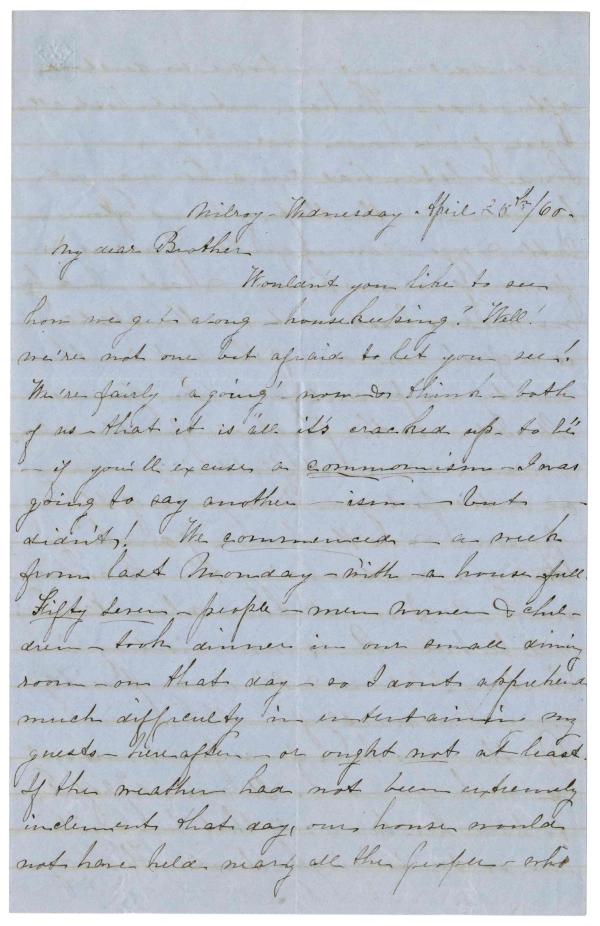 Milroy - Wednesday. April 25th/60.
My dear Brother
Wouldn't you like to see
how we get along - housekeeping? Well!
we're not one bit afraid to let you see!
We're fairly 'agoing' - now - & think - both
of us - that "it is all it's cracked up - to be"
- if you'll excuse a commonism - I was
going to say another - ism - but -
didn't! We commenced - a week
from last Monday - with - a house full.
Fifty seven - people - men women & chil-
dren - took dinner in our small dining
room - on that day - so I don't apprehend
much difficulty in entertaining my
guests - hereafter - or ought not at least.
If the weather had not been extremely
inclement that day, our house would
not have held nearly all the people - who